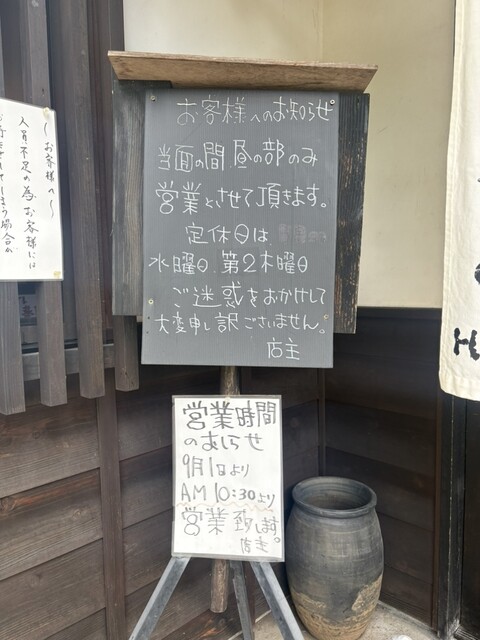 〜お客様へ〜
人員不足の為お客様には
お客様へのお知らせ
当面の間昼の部のみ
営業とさせて頂きます。
定休日は
水曜日 第2木曜日
ご迷惑をおかけして
大変申し訳ございません。
店主
営業時間
のおしらせ
9月1日より
AM 10:30より
営業致します。
店主